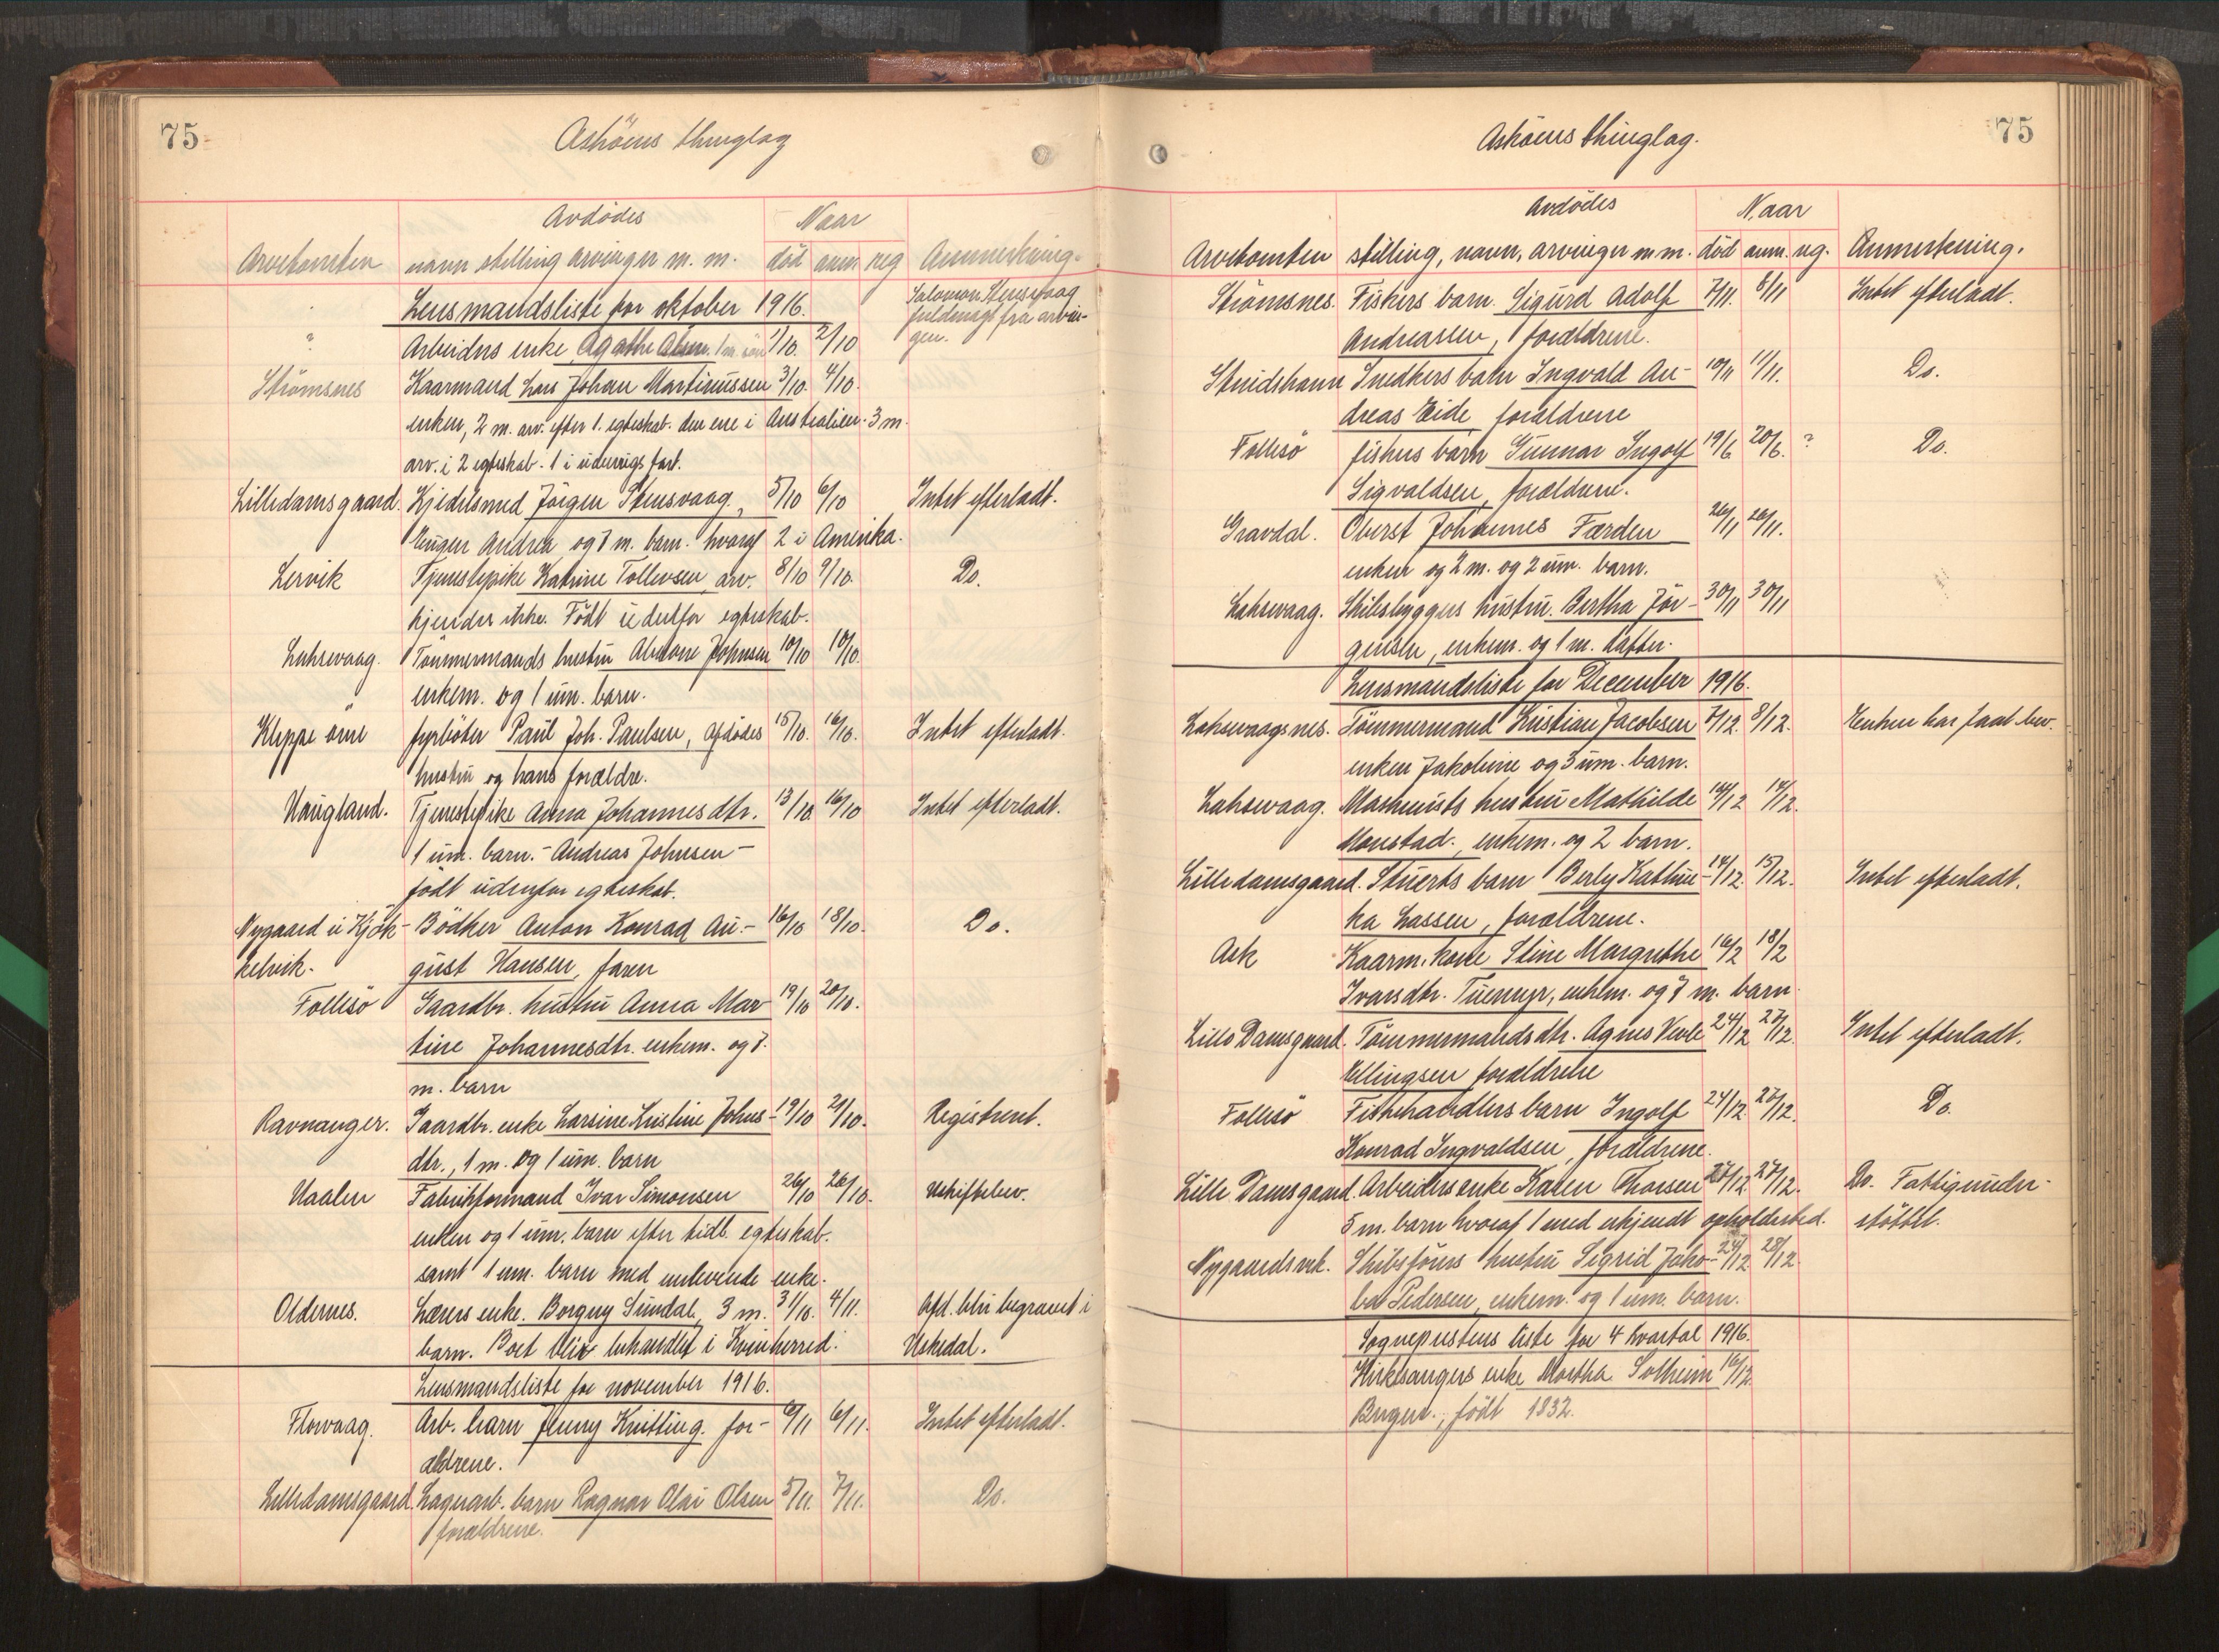 75
Askøens thinglag
Avdødes
Naar
Arvetomten navn stilling arvinger m. m. død anm. reg Anmerkning.
Lensmandsliste for oktober 1916.
Salomon Stensvaag
fuldmagt fra arvin-
gen.
? Arbeiders enke Agathe Olsen. 1 m. søn 1/10. 2/10
Strømsnes Kaarmand Lars Johan Martinussen 3/10. 4/10.
enken, 2 m. arv. efter 1. egteskab. den ene i Australien. 3 m.
arv. i 2 egteskab. 1 i udenrigs fart.
Lilledamsgaard. Kjedelsmed Jørgen Stensvaag. 5/10 6/10 Intet efterladt.
Enken Andrea og 7 m. barn. hvoraf 2 i Amerika.
Lervik Tjenestepike Katrine Tollevsen, arv. 8/10 9/10. Do.
kjendes ikke. Født udenfor egteskab.
Laksevaag. Tømmermands hustru Abelone Johnsen 10/10 10/10.
enkem. og 1 um. barn.
Kleppe øvre fyrbøter Paul Joh. Paulsen, afdødes 15/10. 16/10. Intet efterladt.
hustru og hans forældre.
Haugland. Tjenestepike Anna Johannesdtr. 13/10. 16/10 Intet efterladt.
1 um. barn. - Andreas Johnsen -
født udenfor egteskab.
Nygaard i Kjøk- Bødker Anton Konrad Au- 16/10 18/10. Do.
kelvik. gust Hansen, faren
Follesø Gaardbr. hustru Anna Mar- 19/10 20/10.
tine Johannesdtr. enkem. og 7
m. barn
Ravnanger. Gaardbr. enke Larsine Kristine Johns- 19/10 21/10. Registreret.
dtr., 1 m. og 1 um. barn
Haalen Fabrikformand Ivar Simonsen 26/10 26/10. Uskiftebev.
enken og 1 um. barn efter tidl. egteskab.
samt 1 um. barn med enlevende enke.
Oldernes. Lærers enke. Borgny Sundal, 3 m. 31/10. 4/11. Afd. blir begravet i
barn. Boet blir behandlet i Kvinherred. Uskedal.
Lensmandsliste for november 1916.
Florvaag. Arb. barn Jenny Knitting. for- 6/11 6/11. Intet efterladt.
ældrene.
Lilledamsgaard. Lagerarb. barn Ragnar Olai Olsen 5/11. 7/11. Do.
forældrene.
75
Askøens thinglag.
Avdødes
Naar
Arvetomten stilling, navn, arvinger m m. død anm. reg. Anmerkning.
Strømsnes. Fiskers barn Sigurd Adolf 7/11. 8/11 Intet efterladt.
Andreassen, forældrene.
Strudshavn Snedkers barn Ingvald An- 10/11 11/11. Do.
dreas Eide forældrene
Follesø fiskers barn Gunnar Ingolf 19/6 20/6. ? Do.
Sigvaldsen, forældrene.
Gravdal. Oberst Johannes Færden 26/11 26/11.
enken og 2 m. og 2 um. barn.
Laksevaag. Skibsbyggers hustru. Bertha Jør- 30/11 30/11
gensen, enkem. og 1 m. datter.
Lensmandsliste for December 1916.
Laksevaagsnes. Tømmermand Kristian Jacobsen 7/12. 8/12. Enken har faat bev.
enken Jakobine og 3 um. barn.
Laksevaag. Maskinists hustru Mathilde 14/12 14/12.
Monstad., enkem. og 2 barn.
Lilledamsgaard. Stuerts barn Berly Kathin- 14/12. 15/12. Intet efterladt.
ka Lassen, forældrene.
Ask Kaarm. kone Stine Margrethe 16/12 18/12
Ivarsdtr. Tuenyr, enkem. og 7 m. barn.
Lille Damsgaard. Tømmermands dtr. Agnes Venle 24/12 27/12. Intet efterladt.
Ellingsen forældrene
Follesø Fiskehandlers barn Ingolf 24/12 27/12. Do.
Konrad Ingvaldsen, forældrene.
Lille Damsgaard. Arbeiders enke Karen Thorsen 27/12. 27/12. Do. Fattigunder-
5 m. barn hvoraf 1 med ukjendt opholdssted. støttet.
Nygaardsvik. Skibsførers hustru Sigrid Jako- 24/12 28/12.
ba Pedersen, enkem. og 1 um. barn.
Sogneprestens liste for 4 kvartal 1916.
Kirkesangers enke Martha Solheim 16/12.
Bergen., født 1832.